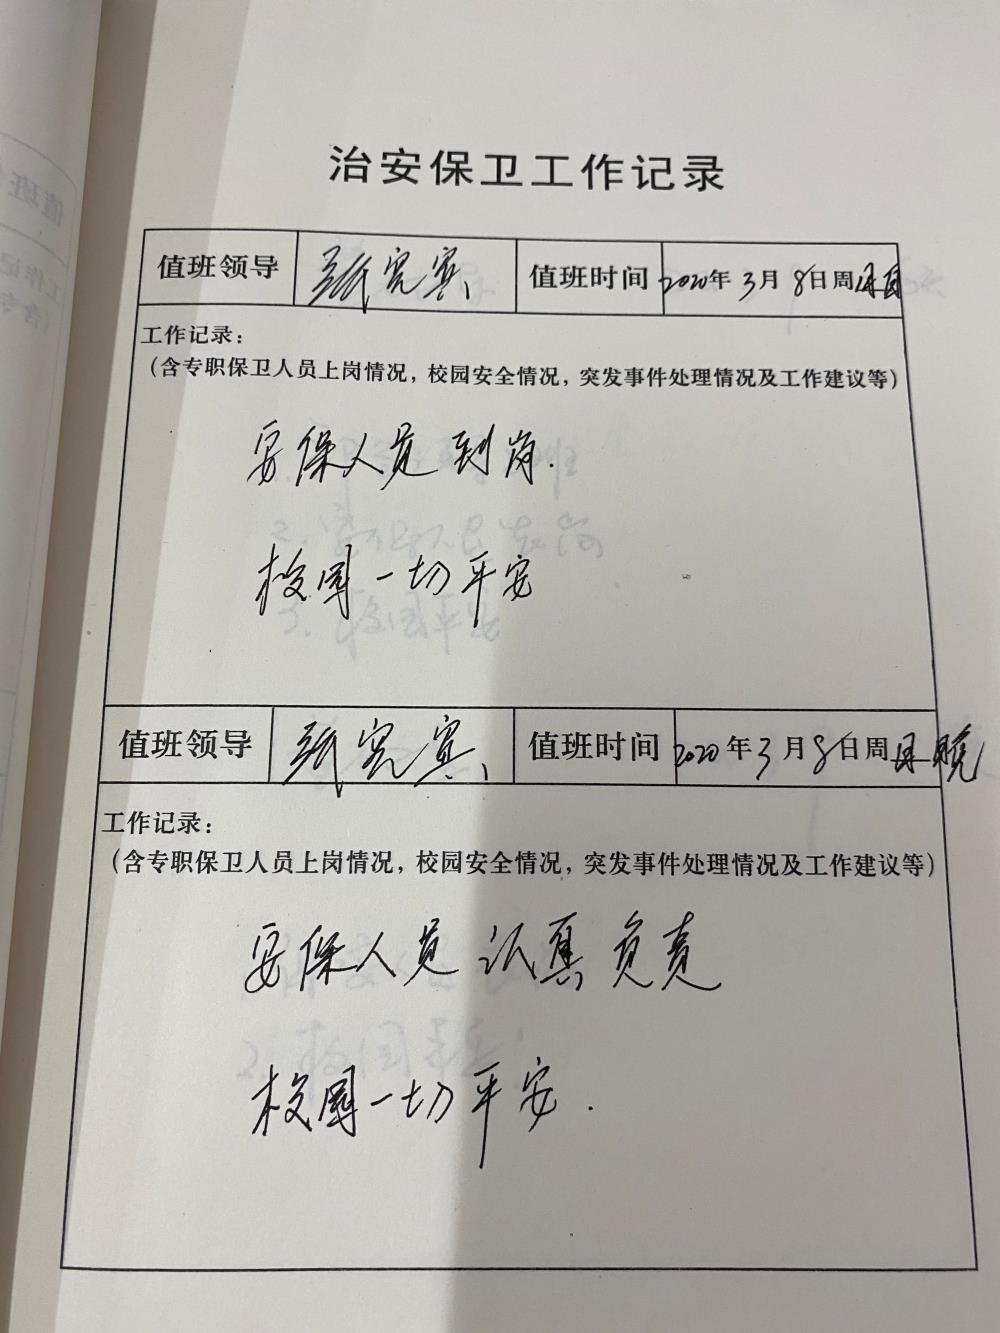 治安保卫工作记录
值班领导 张宪宾 值班时间 2020年3月8日周日
工作记录：
（含专职保卫人员上岗情况，校园安全情况，突发事件处理情况及工作建议等）
安保人员到岗.
校园一切平安
值班领导 张宪宾 值班时间 2020年3月8日周日晚
工作记录：
（含专职保卫人员上岗情况，校园安全情况，突发事件处理情况及工作建议等）
安保人员认真负责
校园一切平安.